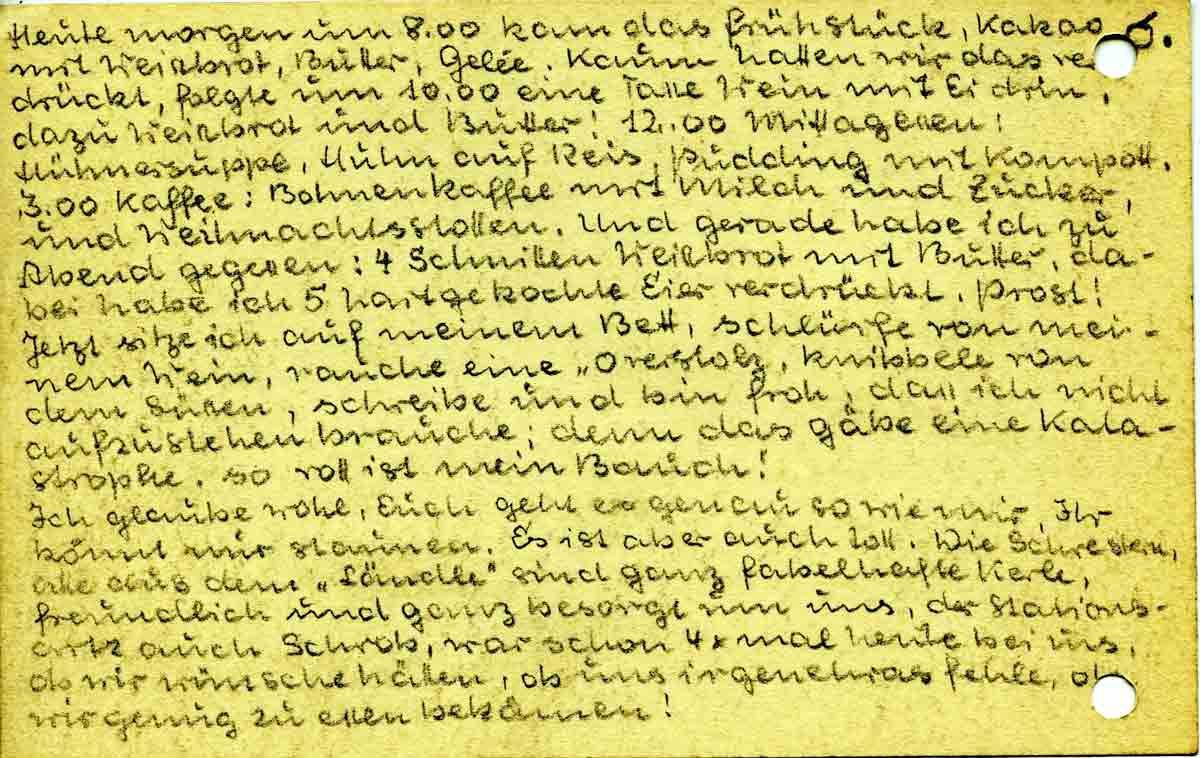 Heute morgen um 8.00 kam das Frühstück, Kakao 6.
mit Weißbrot, Butter, Gelée. Kaum hatten wir das ver
drückt, folgte um 10.00 eine Tasse Wein mit Ei drin,
dazu Weißbrot und Butter! 12.00 Mittagessen!
Hühnersuppe, Huhn auf Reis, Pudding mit Kompott.
3.00 Kaffee: Bohnenkaffee mit Milch und Zucker,
und Weihnachtsstollen. Und gerade habe ich zu
Abend gegessen: 4 Schnitten Weißbrot mit Butter, da-
bei habe ich 5 hartgekochte Eier verdrückt. Prost!
Jetzt sitze ich auf meinem Bett, schlürfe von mei-
nem Wein, rauche eine „Overstolz, knibbele von
dem Süssen, schreibe und bin froh, dass ich nicht
aufzustehen brauche; denn das gäbe eine Kata-
strophe. so voll ist mein Bauch!
Ich glaube wohl, Euch geht es genau so wie mir, Ihr
könnt nur staunen. Es ist aber auch toll. Die Schwestern,
alle aus dem „Ländle" sind ganz fabelhafte Kerle,
freundlich und ganz besorgt um uns, der Stations-
artz auch Schwob, war schon 4x mal heute bei uns,
ob wir wünsche hätten, ob uns irgenetwas fehle, ob
wir genug zu essen bekämen!